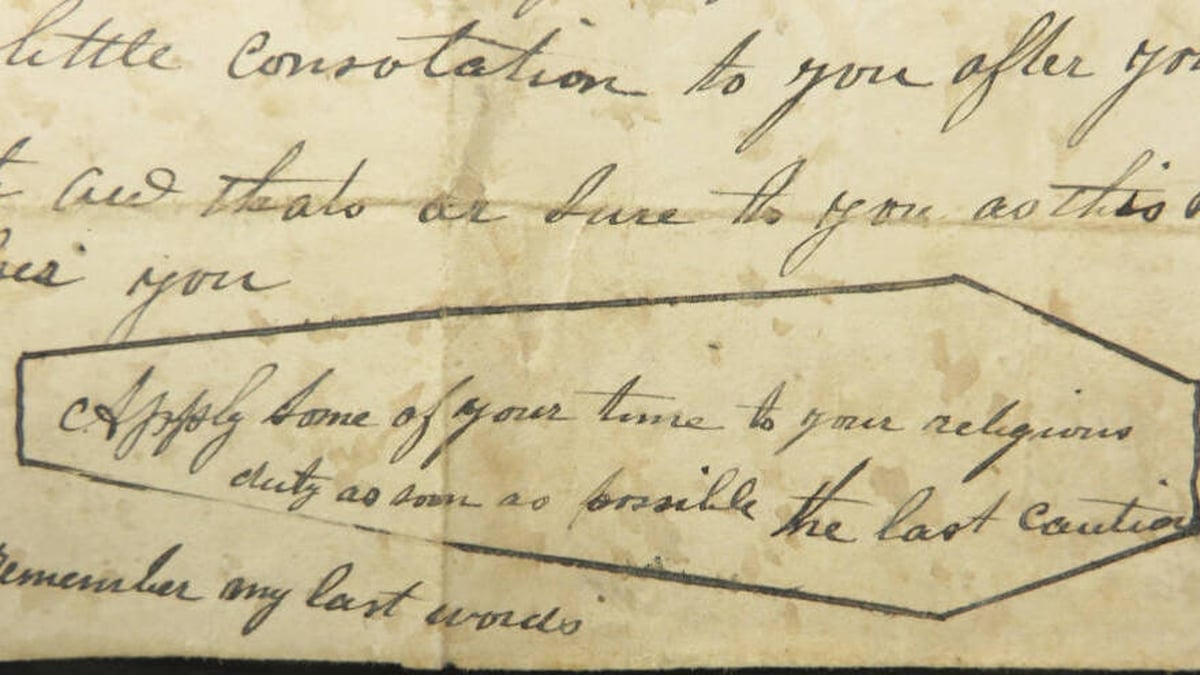 little consolation to you after you
and thats as sure to you as this
you
Apply some of your time to your religious
duty as soon as possible the last caution
remember my last words